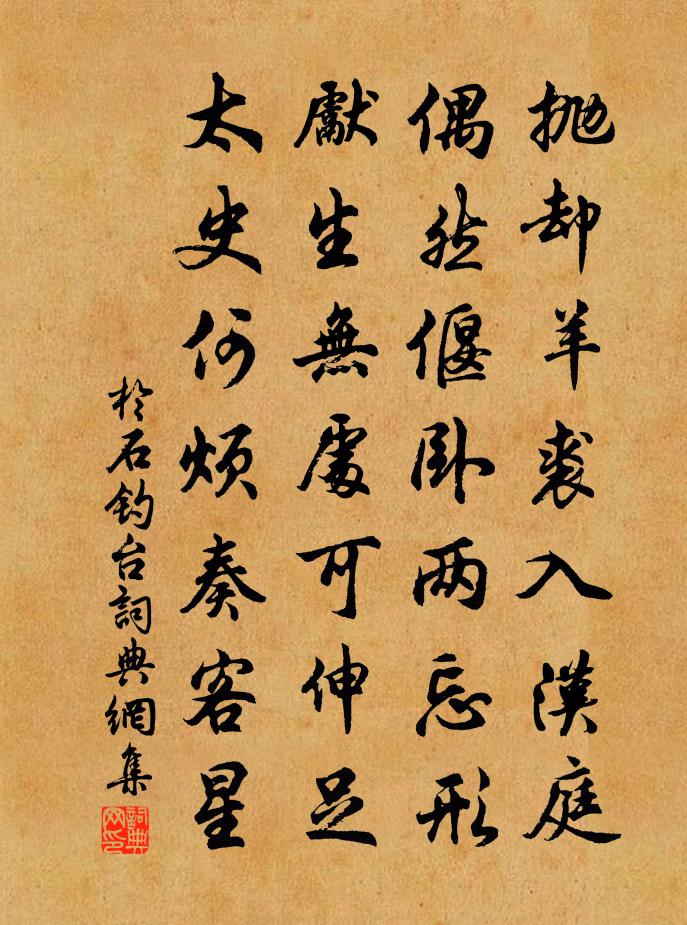 抛却羊裘入漢庭
偶然偃卧两忘形
獻生無處可伸足
太史何煩奏客星
於石釣台詞典網集
詞典网印